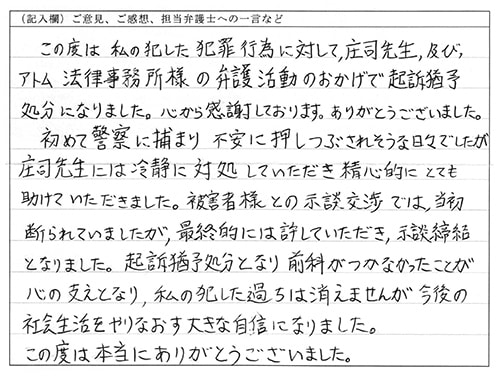 (記入欄)ご意見、ご感想、担当弁護士への一言など
この度は 私の犯した犯罪行為に対して,庄司先生,及び,
アトム 法律事務所様の弁護活動のおかげで起訴猶予
処分になりました。心から感謝しております。ありがとうございました。
初めて警察に捕まり 不安に押しつぶされそうな日々でしたが
庄司先生には冷静に対処していただき精心的にとても
助けていただきました。被害者様との示談交渉では,当初
断られていましたが,最終的には許していただき,示談締結
となりました。起訴猶予処分となり前科がつかなかったことが
心の支えとなり,私の犯した過ちは消えませんが今後の
社会生活をやりなおす大きな自信になりました。
この度は本当にありがとうございました。